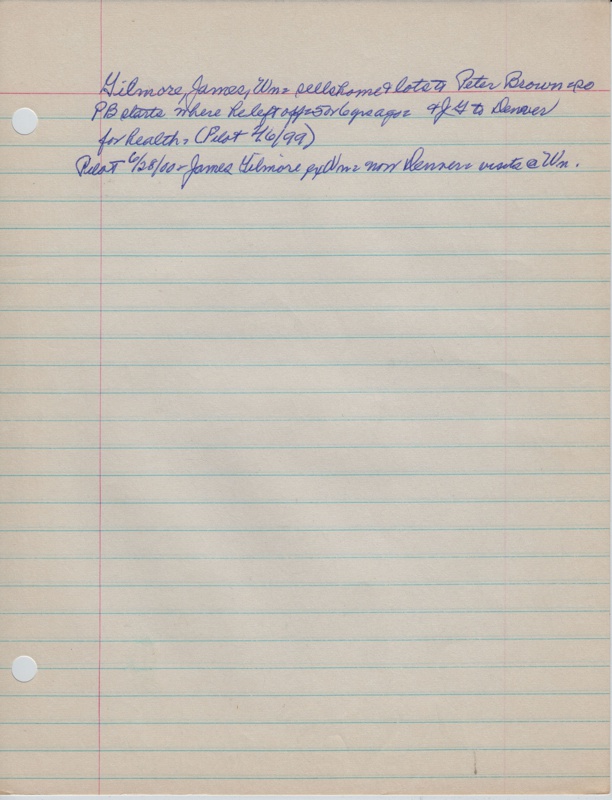 Gilmore, James, Wn = sells home & lots to Peter Brown = so
PB starts where he left off = 5 or 6 yrs ago = & JG to Denver
for health = (Pilot 4/6/99)
Pilot 6/28/00 = James Gilmore ex Wn = now Denver = visits @ Wn.